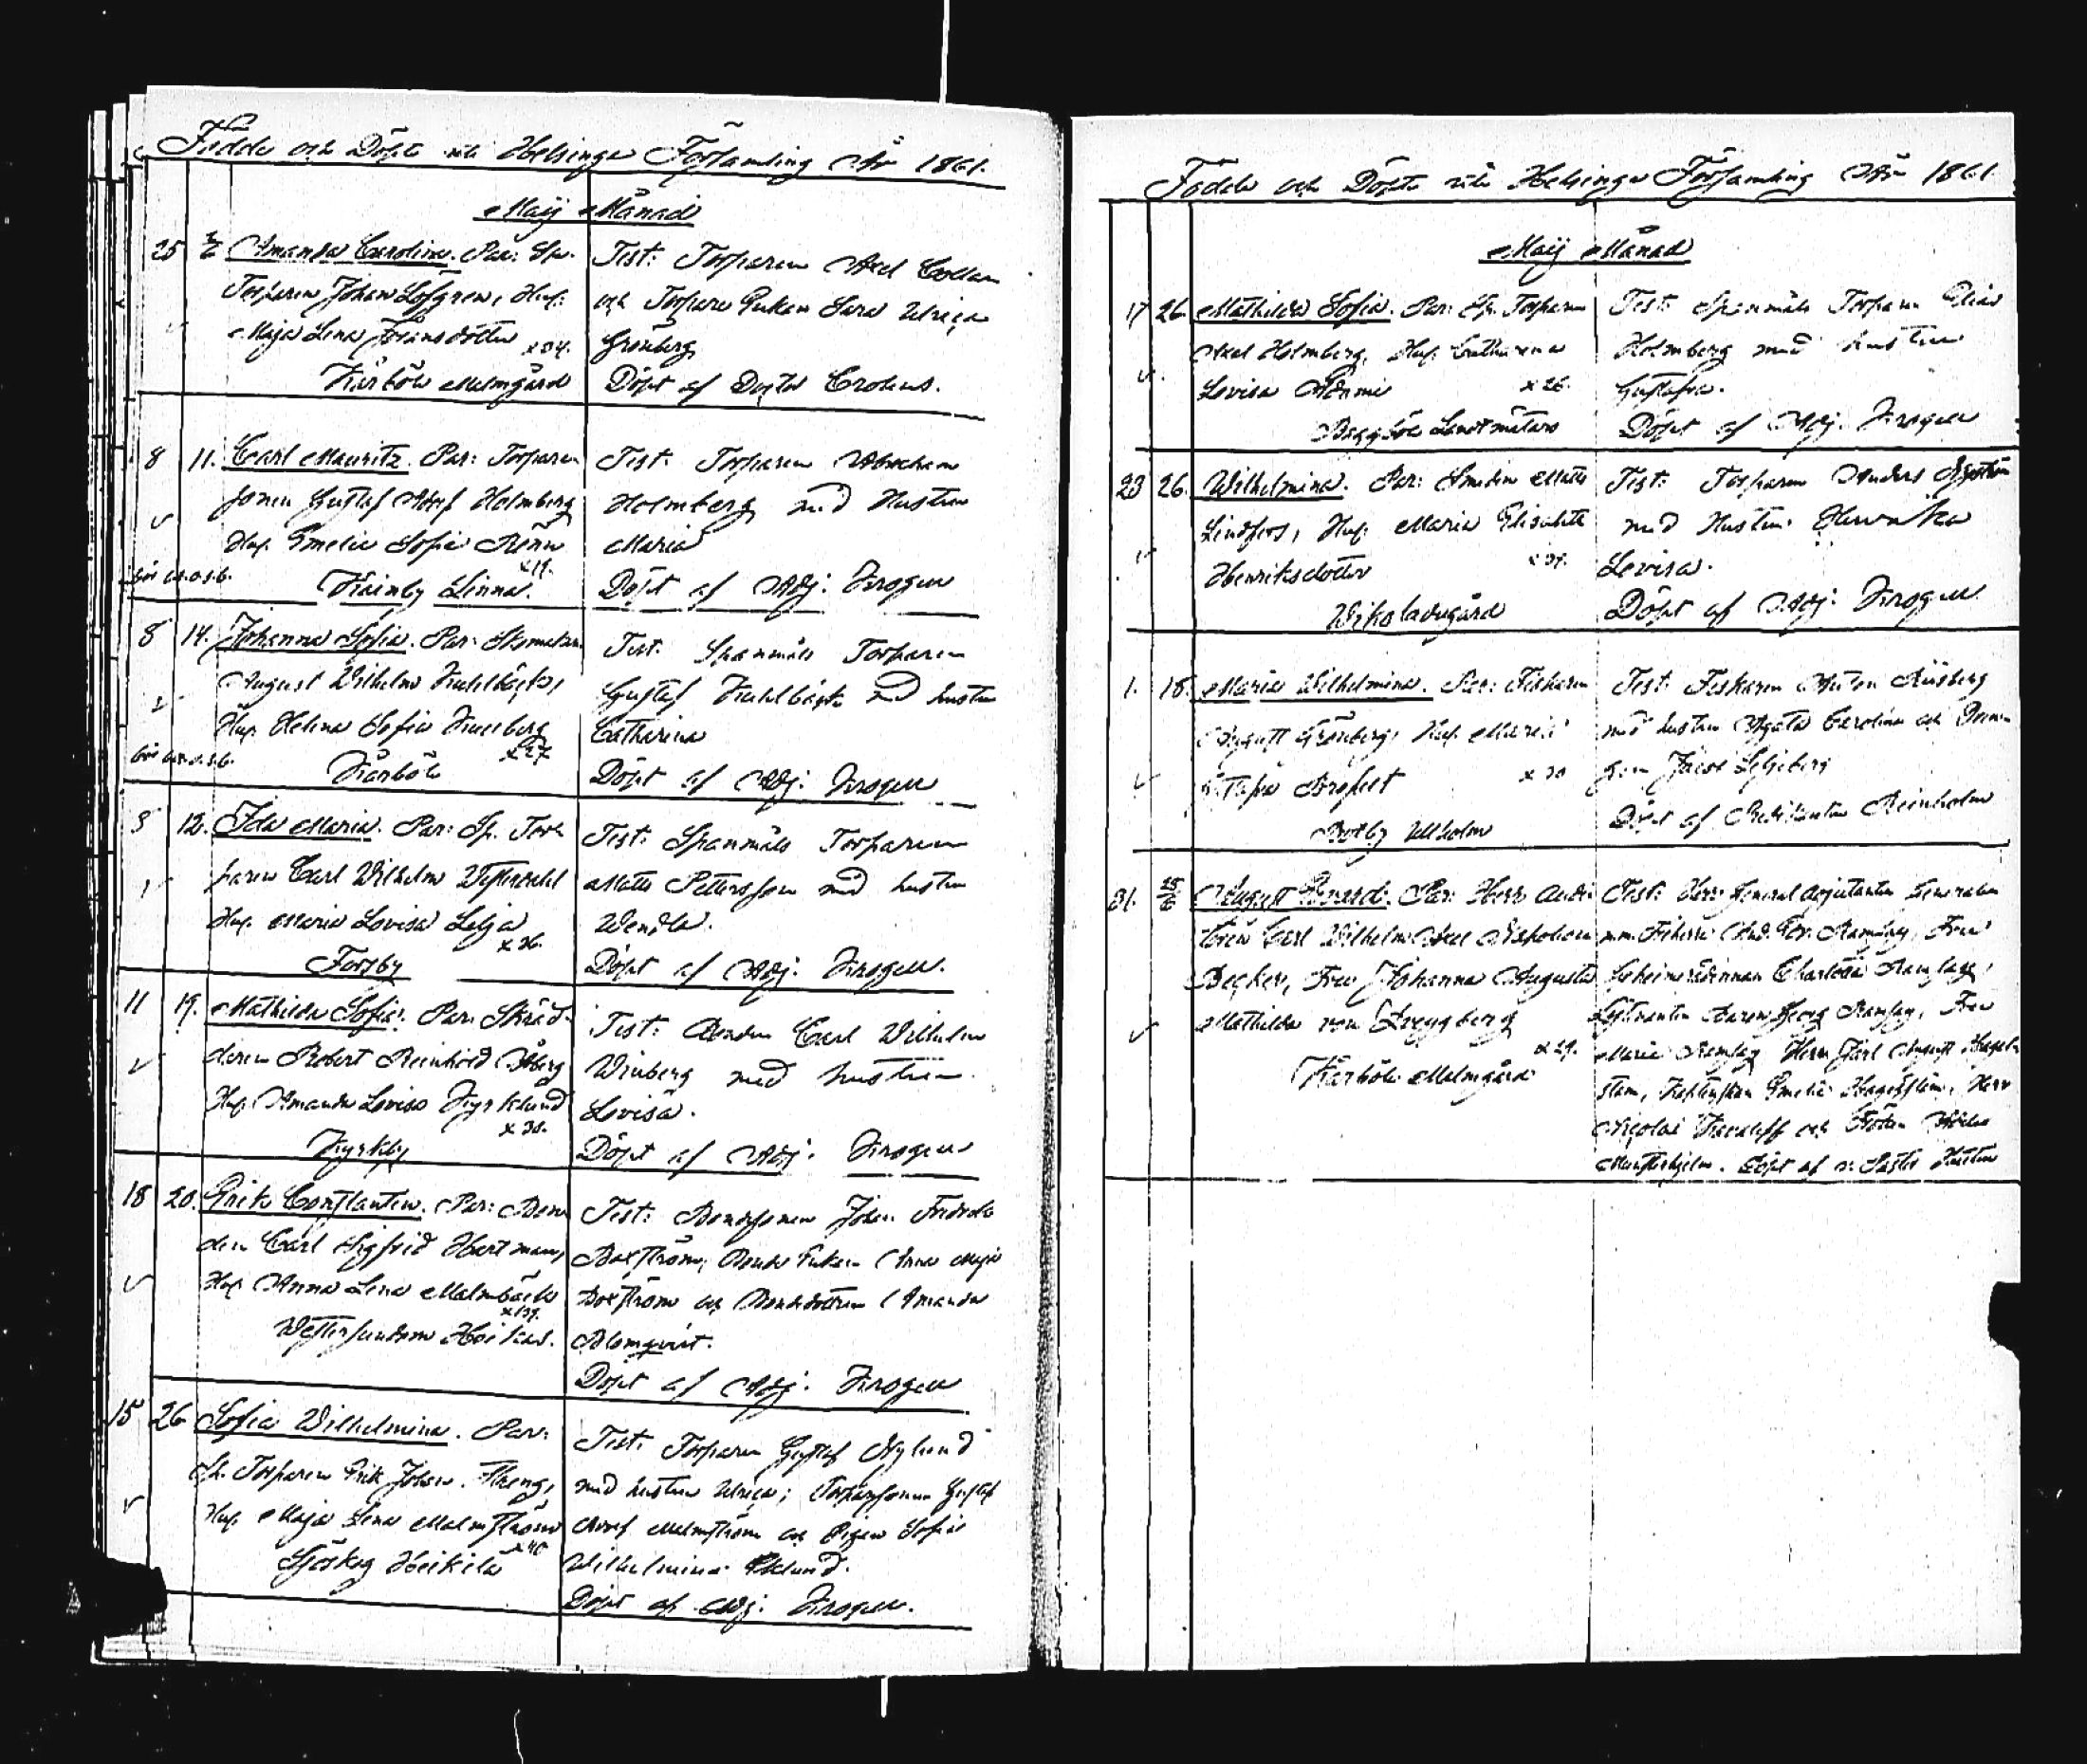 Födde och Döpte uti Helsinge Församling År 1861.
Maij Månad
25 2/6 Amanda Carolina. Par: Sp.
Torparen Johan Löfgren, Hust:
Maja Lena Johansdotter x 34.
Kårböle Malmgård
Test: Torparen Axel Collan
och Torpare Enkan Sara Ulrica
Grönberg
Döpt af Doctor Crohns.
8 11. Carl Mauritz. Par: Torpare
sonen Gustaf Adolf Holmberg
Hust. Emelie Sofia Renn
x 19.
Kårnby Linna.
Test: Torparen Abraham
Holmberg med Hustru
Maria
Döpt af Adj: Krogell
8 14. Johanna Sofia. Par: Skomakaren
August Wilhelm
Hust. Helena Sofia
x 27
Kårböle
Test: Spanmåls Torparen
Gustaf med hustru
Catharina
Döpt af Adj: Krogell
5 12. Ida Maria. Par: Sp. Tor-
paren Carl Wilhelm Westerdahl
Hust. Maria Lovisa Lilja
x 36.
Forsby
Test: Spanmåls Torparen
Matts Pettersson med hustru
Wendla.
Döpt af Adj. Krogell.
11 19. Mathilda Sofia. Par: Skräd-
daren Robert Reinhold Åberg
Hust. Amanda Lovisa Kyrklund
x 30.
Kyrkby
Test: Bonden Carl Wilhelm
Winberg med hustru
Lovisa.
Döpt af Adj. Krogell
18 20. Erik Constantin. Par: Bon-
den Carl Sigfrid Hartman,
Hust. Anna Lena Malmbäck
x 39.
Westersundom Hoikas.
Test: Bondesonen Johan Fredrik
Boxström, Bonde Enkan Anna Maja
Boxström och Bondedottren Amanda
Blomqvist.
Döpt af Adj. Krogell
15 26 Sofia Wilhelmina. Par:
Sp. Torparen Erik Johan Streng,
Hust. Maja Lena Malmström
x 40
Sjöskog Heikilä
Test: Torparen Gustaf Nylund
med hustru Ulrica; Torparesonen Gustaf
Adolf Malmström och Pigan Sofia
Wilhelmina Eklund.
Döpt af Adj. Krogell.
Födde och Döpte uti Helsinge Församling År 1861.
Maij Månad
17 26 Mathilda Sofia. Par: Sp. Torparen
Axel Holmberg, Hust. Catharina
Lovisa x 26.
Baggböle Landtmäters
Test: Spanmåls Torparen Elias
Holmberg med hustru
Gustafva.
Döpt af Adj. Krogell
23 26. Wilhelmina. Par: Smeden Matts
Lindfors, Hust. Maria Elisabeth
Henriksdotter x 39.
Wik Ladugård
Test: Torparen Anders Nyström
med Hustru Henrika
Lovisa.
Döpt af Adj: Krogell
1. 18. Maria Wilhelmina. Par: Fiskaren
August Grönberg, Hust. Maria
Brofelt x 30
Botby Ulholm
Test: Fiskaren Anton Åkerberg
med hustru Agata Carolina och
Jacob Liljeberg
Döpt af Predikanten Reinholm
31. 25/6 August Edvard. Par: Herr Audi-
tören Carl Wilhelm Axel Napoleon
Becker, Fru Johanna Augusta
Mathilda von Kreyzberg
x 29.
Kårböle Malmgård
Test: Herr General Adjutanten Generalen
m.m. Friherre And. Edv. Ramsay, Fru
Geheimerådinnan Charlotta Ramsay,
Löjtnanten Baron Georg Ramsay, Fru
Marie Ramsay Herr Karl August Hagel-
stam, Emelie Hagelstam, Herr
Nicolai och Fröken
Munsterhjelm. Döpt af v. Pastor